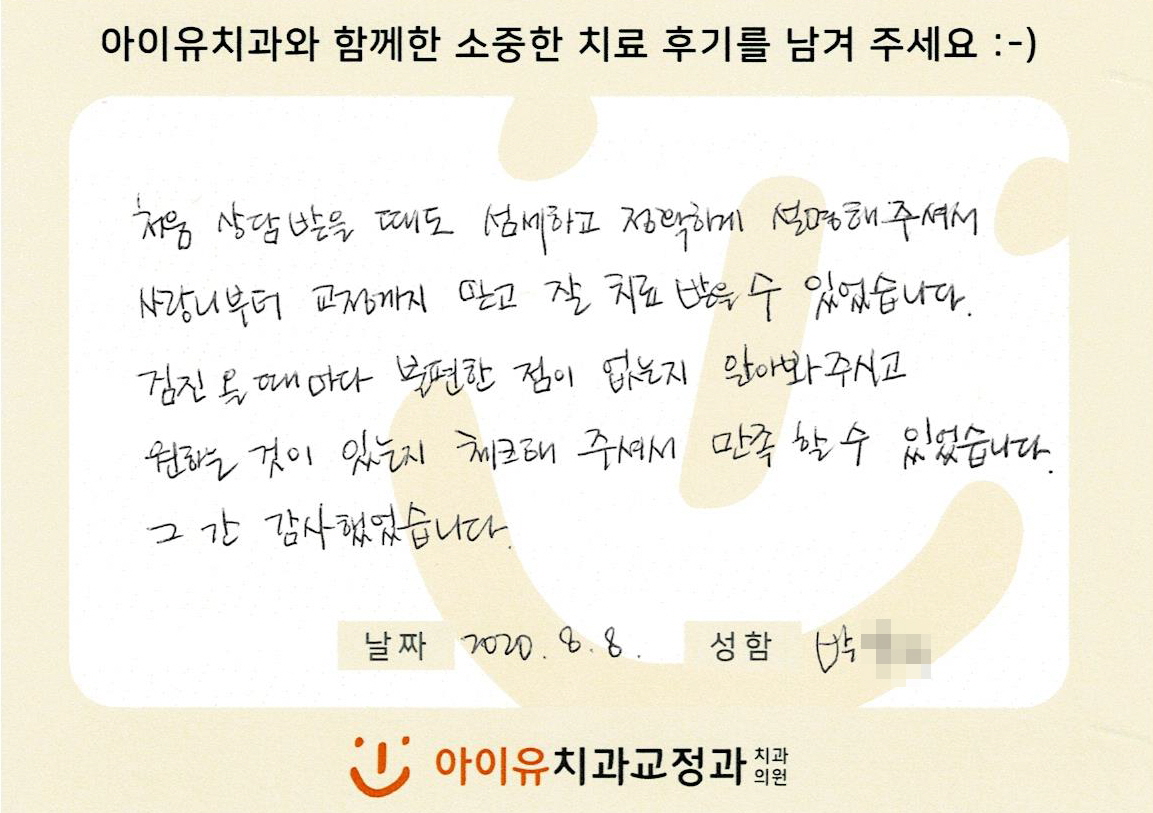 아이유치과와 함께한 소중한 치료 후기를 남겨 주세요 :-)
처음 상담 받을 때도 섬세하고 정확하게 설명해주셔서
사랑니부터 교정까지 믿고 잘 치료 받을 수 있었습니다.
검진 올 때마다 불편한 점이 없는지 알아봐주시고
원하는 것이 있는지 체크해 주셔서 만족 할 수 있었습니다.
그 간 감사했었습니다.
날짜 2020. 8. 8. 성함 박
아이유치과교정과 치과의원